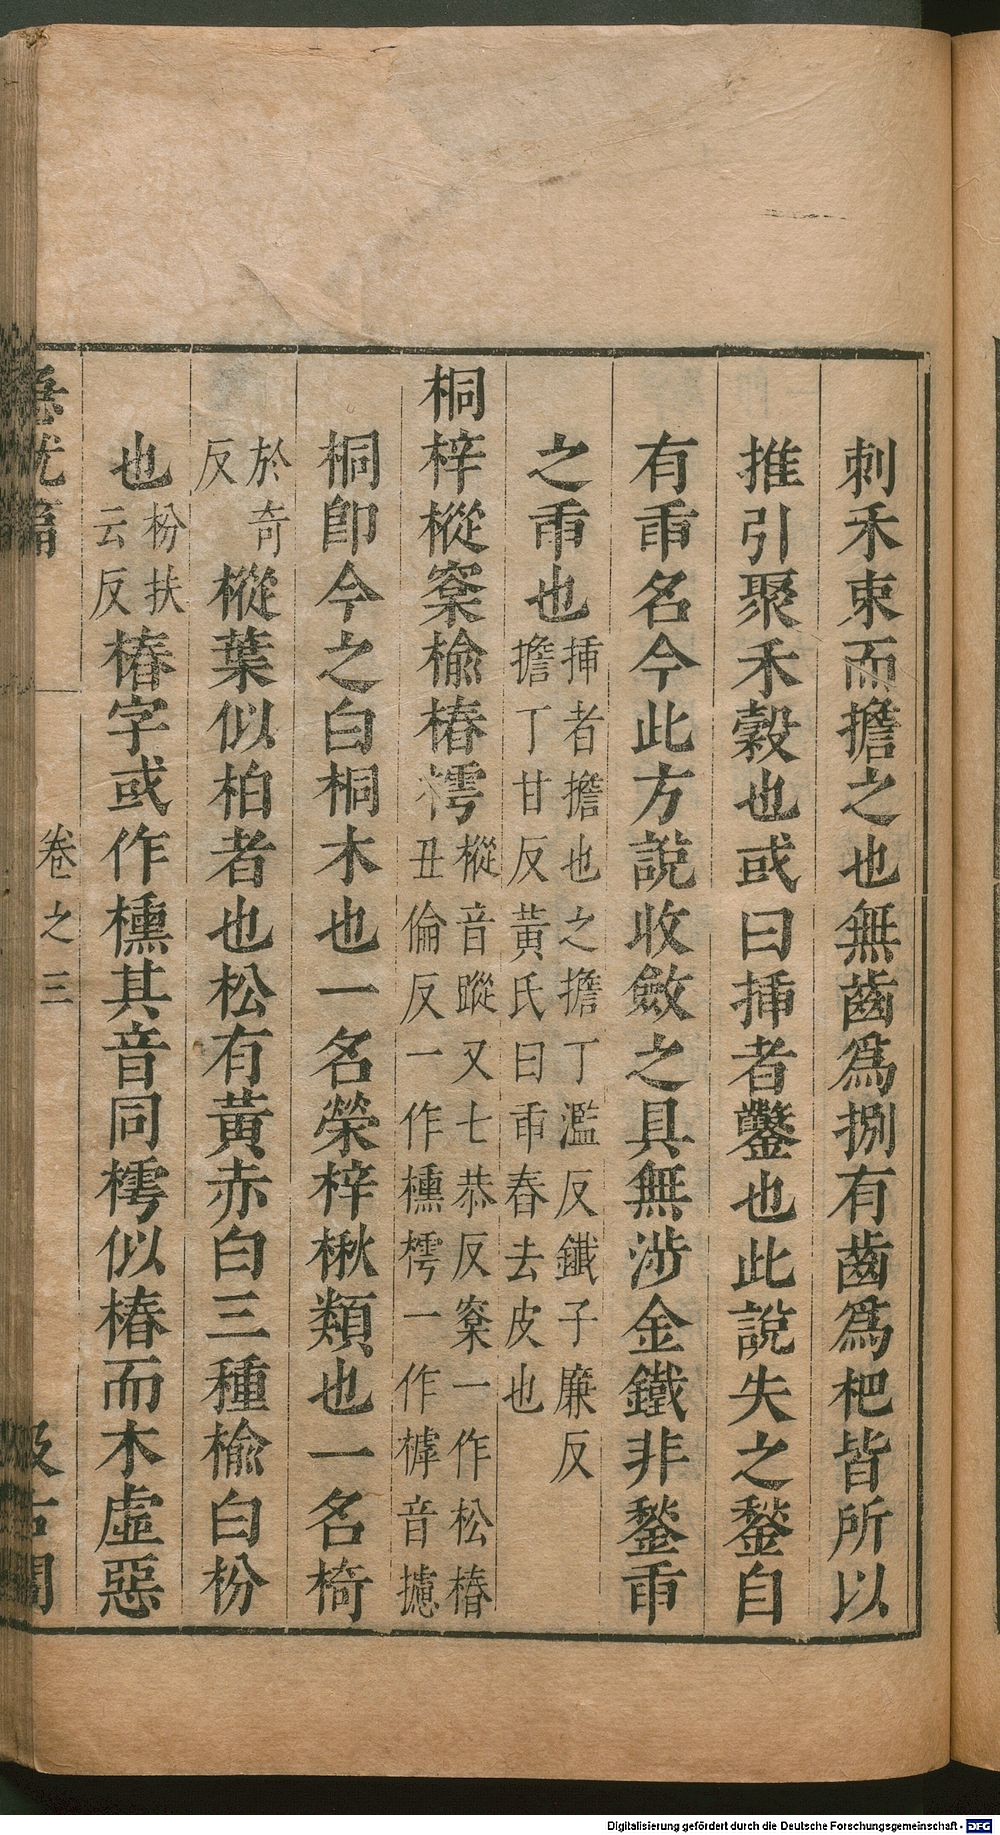 刺禾束而擔之也無齒爲捌有齒爲杷皆所以
推引聚禾穀也或曰揷者鑿也此說失之鐅自
有臿名今此方說收斂之具無涉金鐵非鐅臿
之臿也揷者擔也之擔丁濫反鐵子廉反
擔丁甘反黃氏曰臿舂去皮也
桐梓樅㮤榆椿樗樅音蹤又七恭反㮤一作松椿
丑倫反一作櫄樗一作㯉音攄
桐卽今之白桐木也一名榮梓楸類也一名椅
於奇
反樅葉似柏者也松有黃赤白三種榆白枌
也枌扶
云反椿字或作櫄其音同樗似椿而木虛惡
急就篇
卷之三
汲古閣
Digitalisierung gefördert durch die Deutsche Forschungsgemeinschaft - DFG